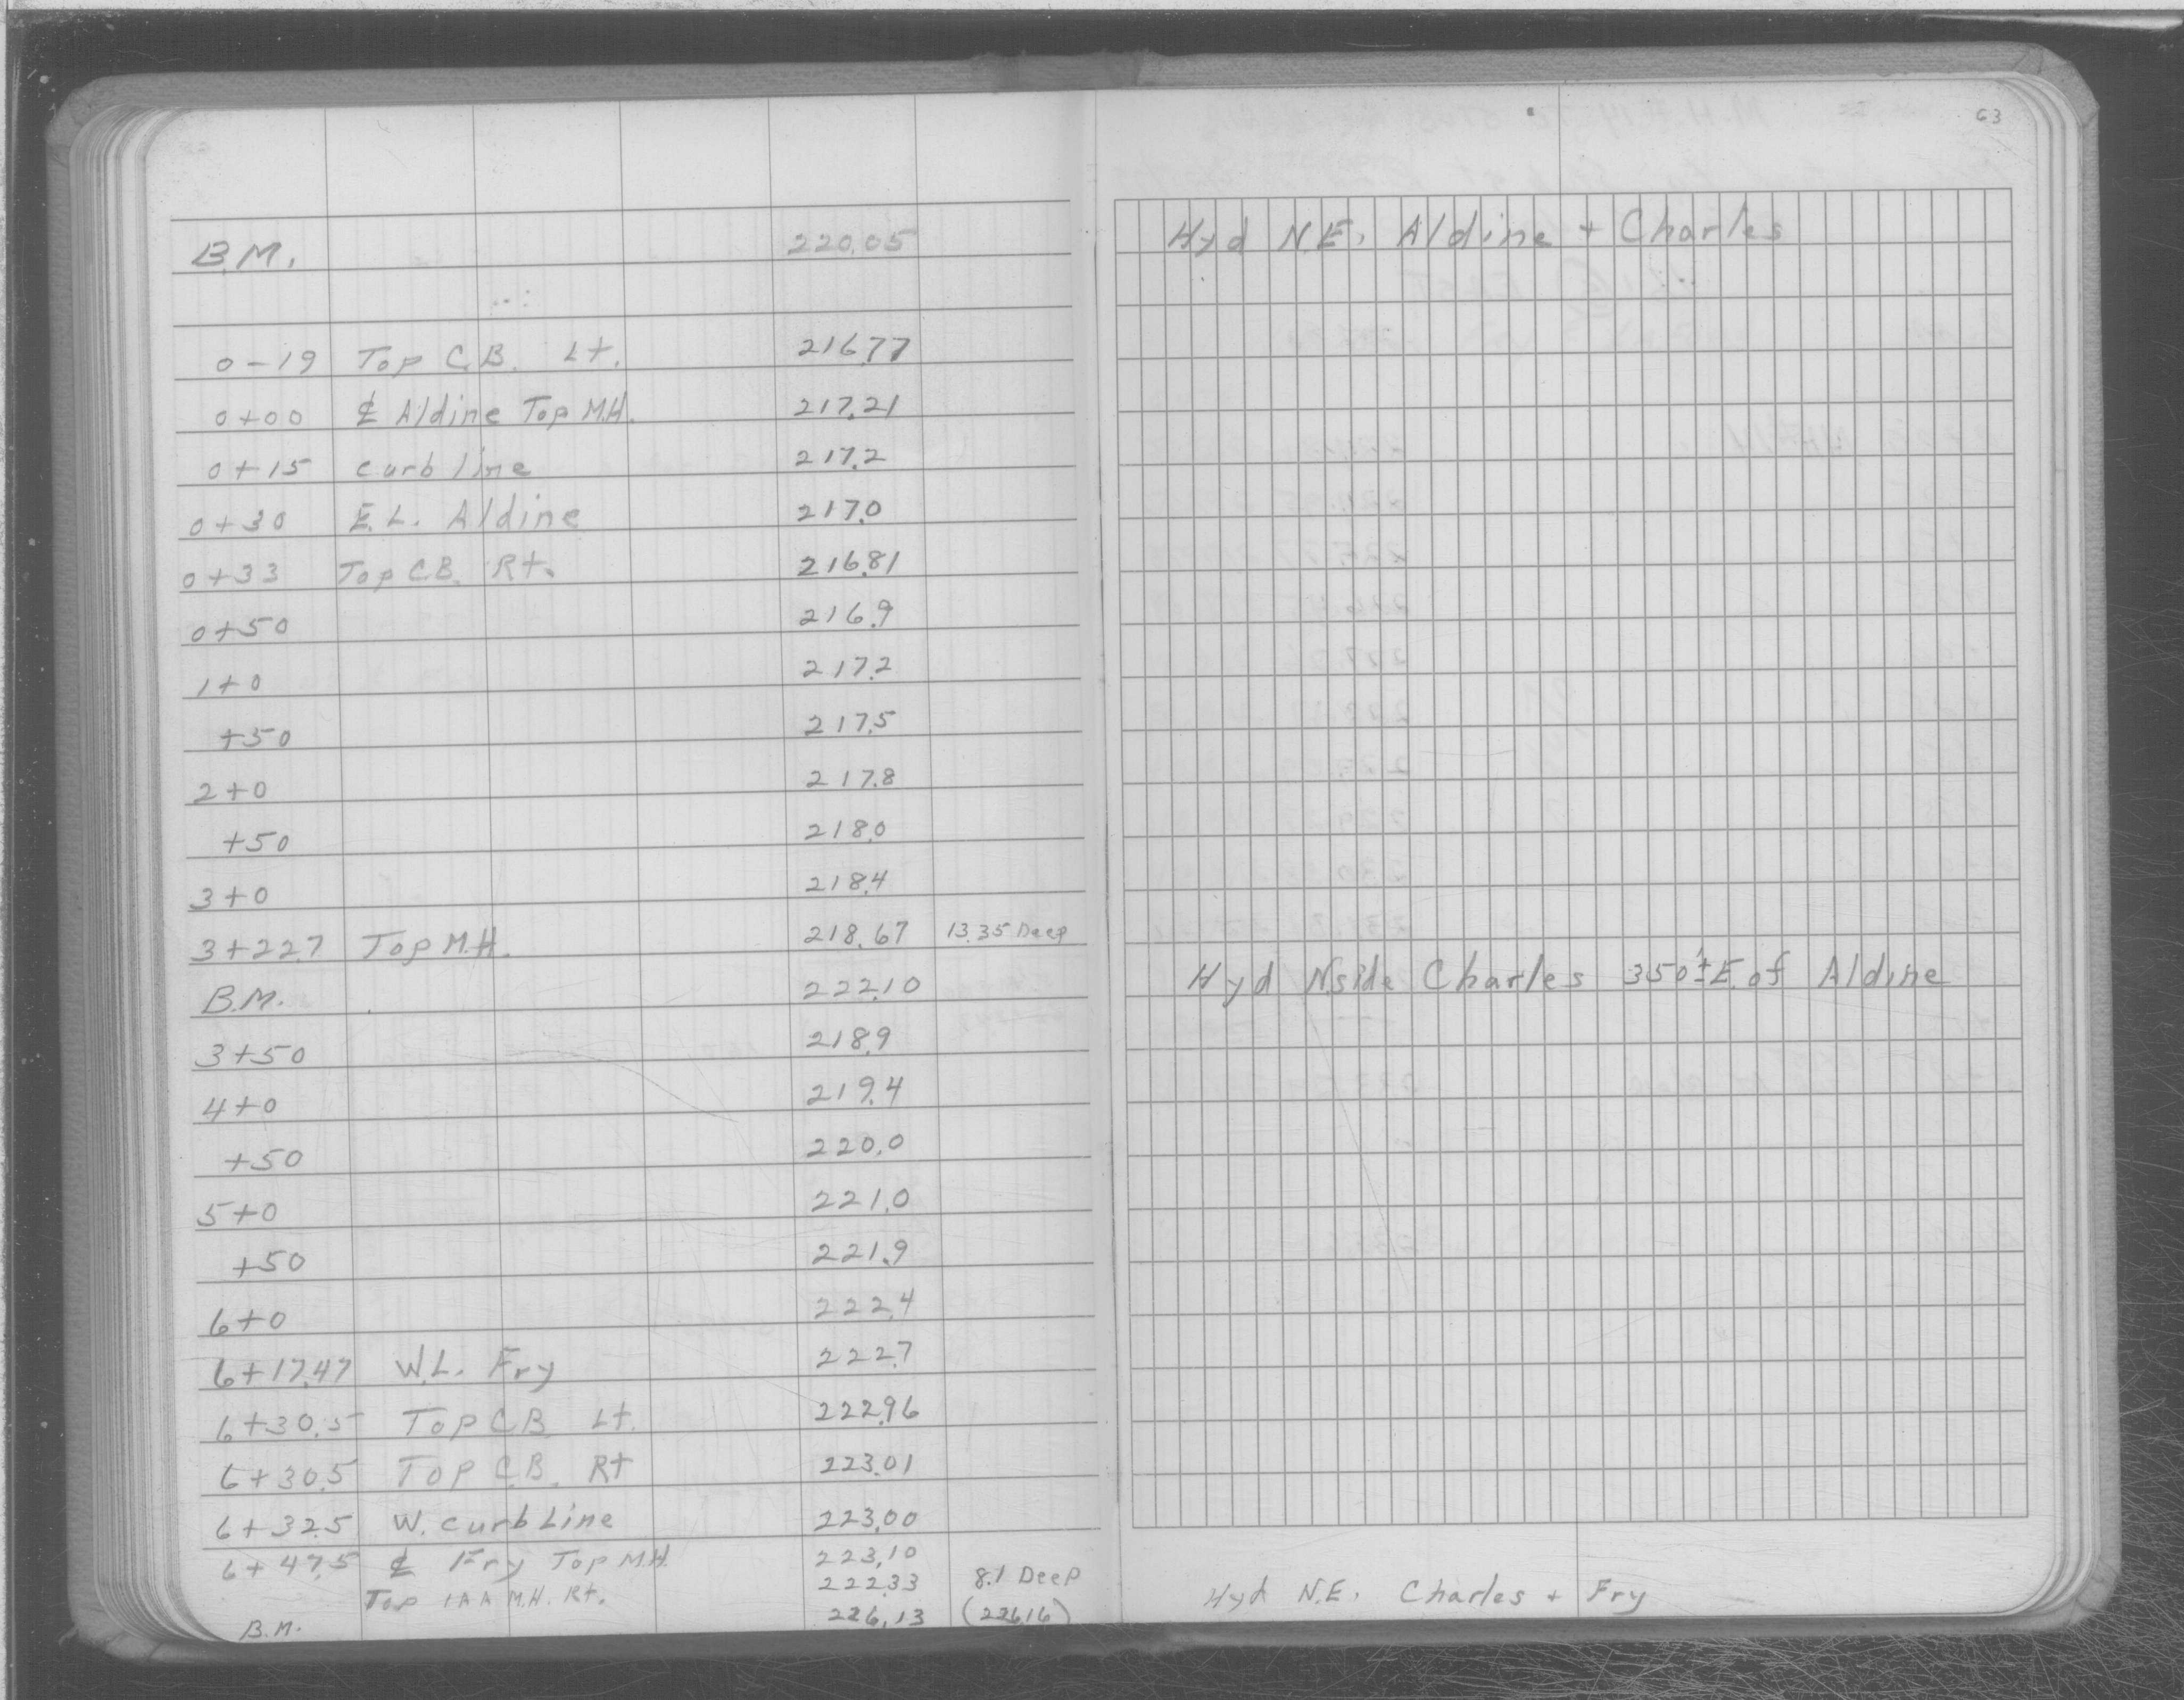 63
B.M. 220.05 Hyd N.E. Aldine + Charles
0-19 Top C.B. Lt. 216.77
0+00 ℄ Aldine Top M.H. 217.21
0+15 curb line 217.2
0+30 E.L. Aldine 217.0
0+33 Top C.B. Rt. 216.81
0+50 216.9
1+0 217.2
+50 217.5
2+0 217.8
+50 218.0
3+0 218.4
3+22.7 Top M.H. 218.67 13.35 Deep
B.M. 222.10 Hyd N.side Charles 350'± E. of Aldine
3+50 218.9
4+0 219.4
+50 220.0
5+0 221.0
+50 221.9
6+0 222.4
6+17.47 W.L. Fry 222.7
6+30.5 Top C.B. Lt. 222.96
6+30.5 Top C.B. Rt 223.01
6+32.5 W. curb Line 223.00
6+47.5 ℄ Fry Top M.H. 223.10
Top M.H. Rt. 222.33 8.1 Deep
B.M. 226.13 (226.16) Hyd N.E. Charles + Fry